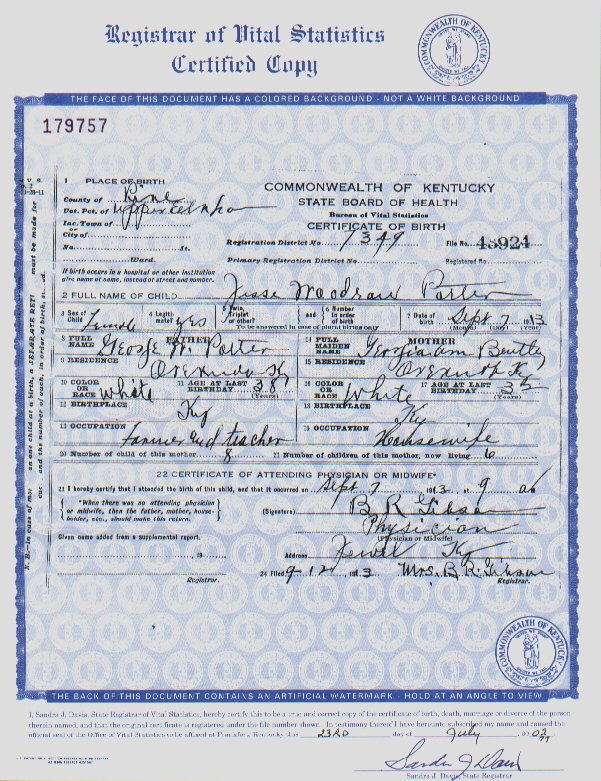 Registrar of Vital Statistics
Certified Copy
COMMONWEALTH OF KENTUCKY
THE FACE OF THIS DOCUMENT HAS A COLORED BACKGROUND - NOT A WHITE BACKGROUND
179757
1 PLACE OF BIRTH
County of
Vot. Pct. of
Inc. Town of
or
City of
No. St.
Ward.
If birth occurs in a hospital or other institution
give name of same, instead of street and number.
COMMONWEALTH OF KENTUCKY
STATE BOARD OF HEALTH
Bureau of Vital Statistics
CERTIFICATE OF BIRTH
Registration District No. 1349 File No. 43924
Primary Registration District No. Registered No.
2 FULL NAME OF CHILD Jesse Woodrow Porter
3 Sex of Child Female 4 Legitimate? yes 5 Twin, Triplet or other? and 6 Number in order of birth 7 Date of birth Sept 7 1913
(Month) (Day) (Year)
To be answered in case of plural births only
FATHER
8 FULL NAME George W. Porter
9 RESIDENCE
10 COLOR OR RACE White 11 AGE AT LAST BIRTHDAY 38 (Years)
12 BIRTHPLACE Ky
13 OCCUPATION Farmer and teacher
MOTHER
14 FULL MAIDEN NAME
15 RESIDENCE
16 COLOR OR RACE White 17 AGE AT LAST BIRTHDAY (Years)
18 BIRTHPLACE Ky
19 OCCUPATION Housewife
20 Number of child of this mother 8 21 Number of children of this mother, now living 6
22 CERTIFICATE OF ATTENDING PHYSICIAN OR MIDWIFE*
I hereby certify that I attended the birth of this child, and that it occurred on Sept 7 1913, at 9 am
*When there was no attending physician
or midwife, then the father, mother, householder, etc., should make this return.
(Signature) B R Gibson
Physician
(Physician or Midwife)
Given name added from a supplemental report.
, 19
Registrar.
Address Jewel Ky
24 Filed 9-12 1913 Mrs. B. R. Gibson
Registrar.
COMMONWEALTH OF KENTUCKY
THE BACK OF THIS DOCUMENT CONTAINS AN ARTIFICIAL WATERMARK - HOLD AT AN ANGLE TO VIEW
I, Sandra J. Davis, State Registrar of Vital Statistics, hereby certify this to be a true and correct copy of the certificate of birth, death, marriage or divorce of the person
therein named, and that the original certificate is registered under the file number shown. In testimony thereof I have hereunto subscribed my name and caused the
official seal of the Office of Vital Statistics to be affixed at Frankfort, Kentucky this 23RD day of July
Sandra J. Davis
Sandra J. Davis, State Registrar